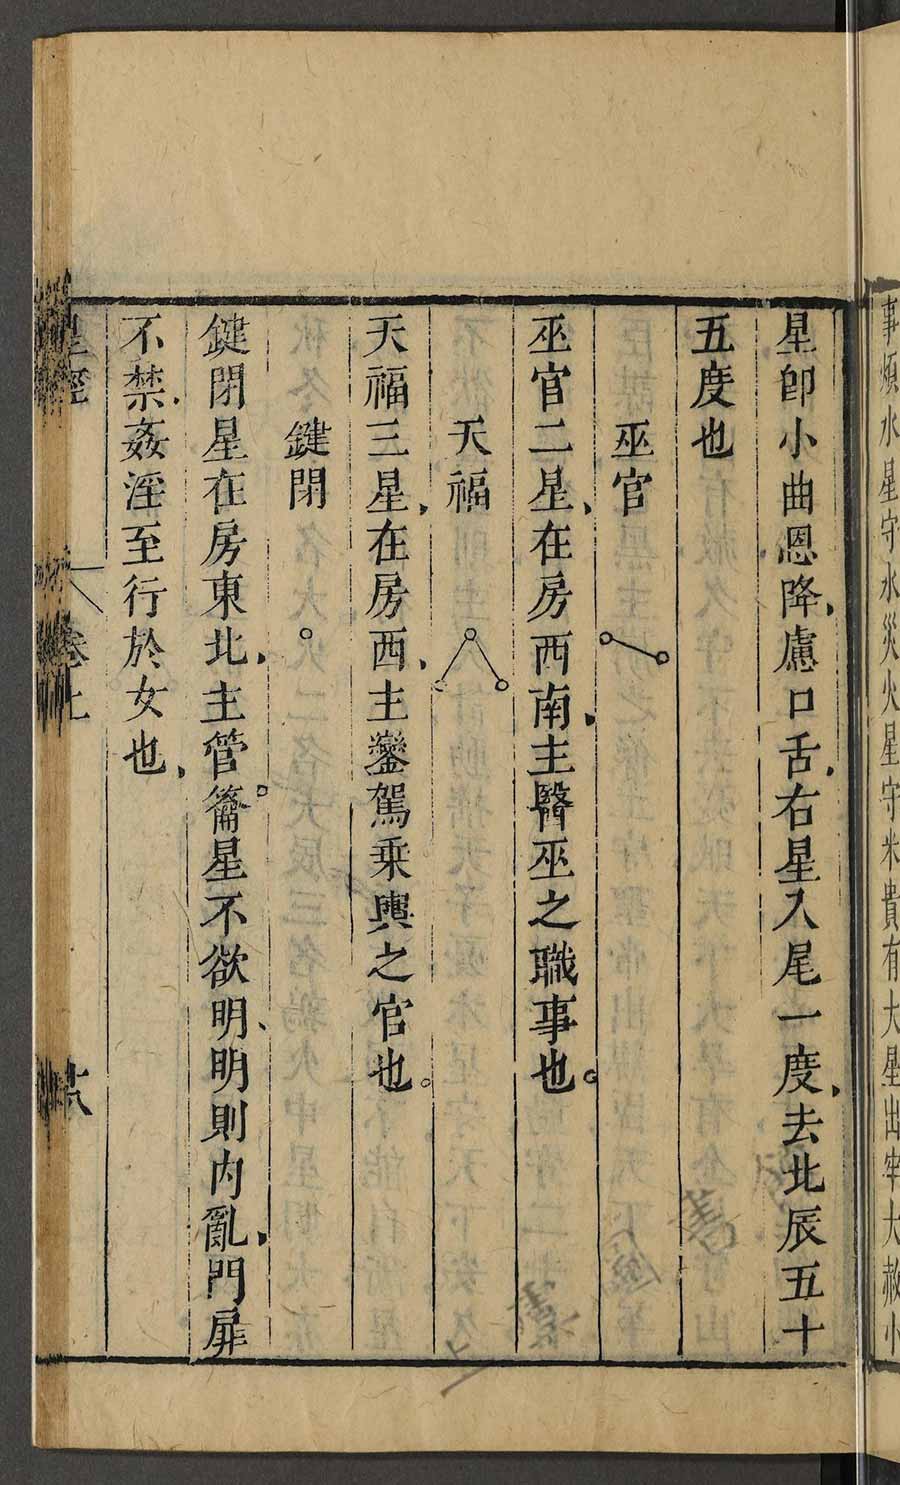 事煩水星守水災火星守米貴有大星出牢大赦小
星即小曲恩降慮口舌右星入尾一度去北辰五十
五度也
巫官
巫官二星在房西南主醫巫之職事也
天福
天福三星在房西主鑾駕乗輿之官也
鍵閉
鍵閉星在房東北主管籥星不欲明明則内亂門扉
不禁姦淫至行於女也
星經
卷上
十八